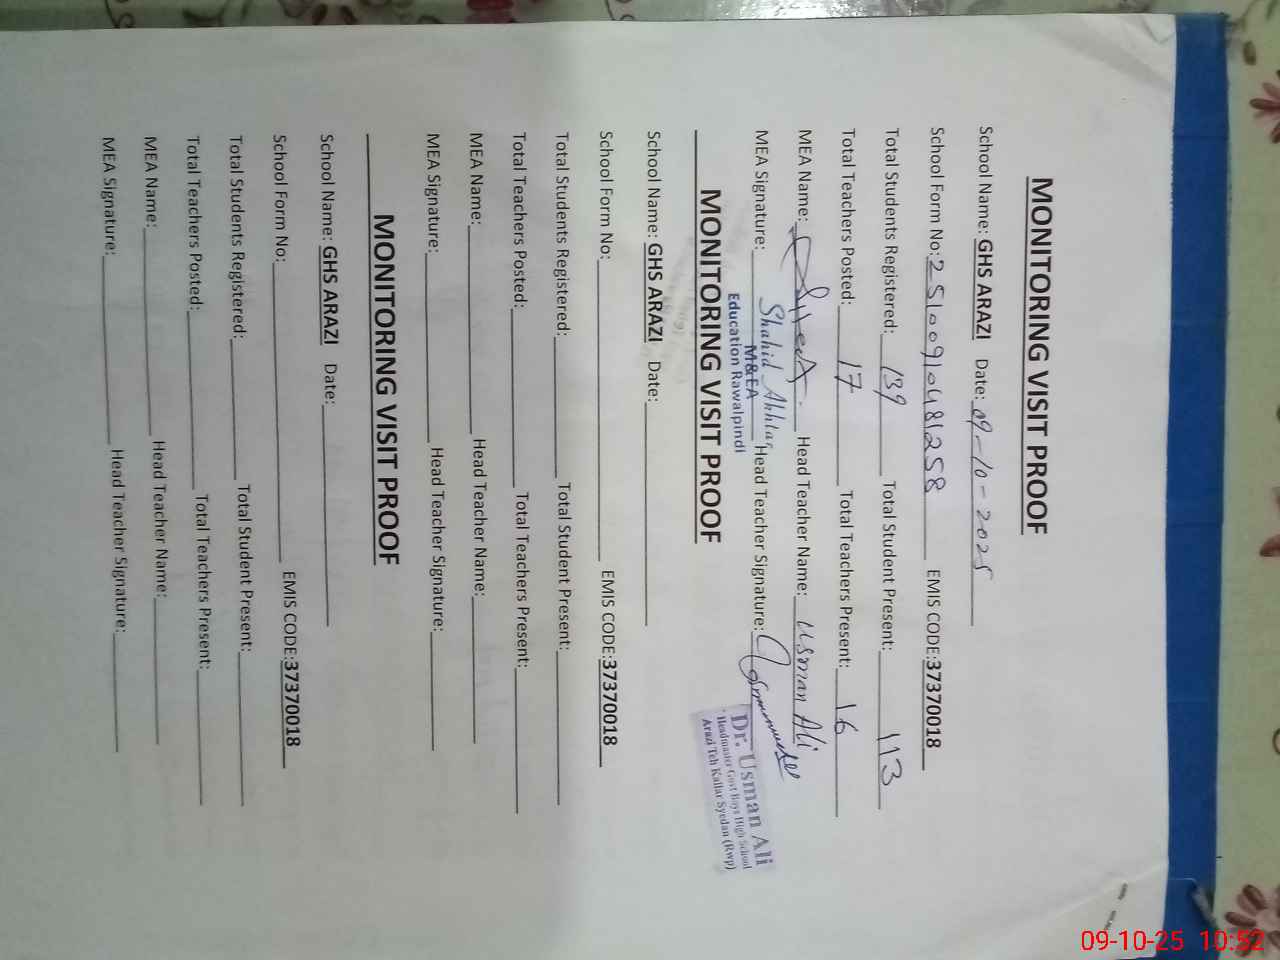 MONITORING VISIT PROOF
School Name: GHS ARAZI Date: 09-10-2025
School Form No: 25100910481258 EMIS CODE:37370018
Total Students Registered: 139 Total Student Present: 113
Total Teachers Posted: 17 Total Teachers Present: 16
MEA Name: Head Teacher Name: Usman Ali
MEA Signature: Shahid Akhtar Head Teacher Signature:
M&EA
Education Rawalpindi
Dr. Usman Ali
Headmaster Govt Boys High School
Arazi Teh Kallar Syedan (Rwp)
MONITORING VISIT PROOF
School Name: GHS ARAZI Date:
School Form No: EMIS CODE:37370018
Total Students Registered: Total Student Present:
Total Teachers Posted: Total Teachers Present:
MEA Name: Head Teacher Name:
MEA Signature: Head Teacher Signature:
MONITORING VISIT PROOF
School Name: GHS ARAZI Date:
School Form No: EMIS CODE:37370018
Total Students Registered: Total Student Present:
Total Teachers Posted: Total Teachers Present:
MEA Name: Head Teacher Name:
MEA Signature: Head Teacher Signature:
09-10-25 10:52